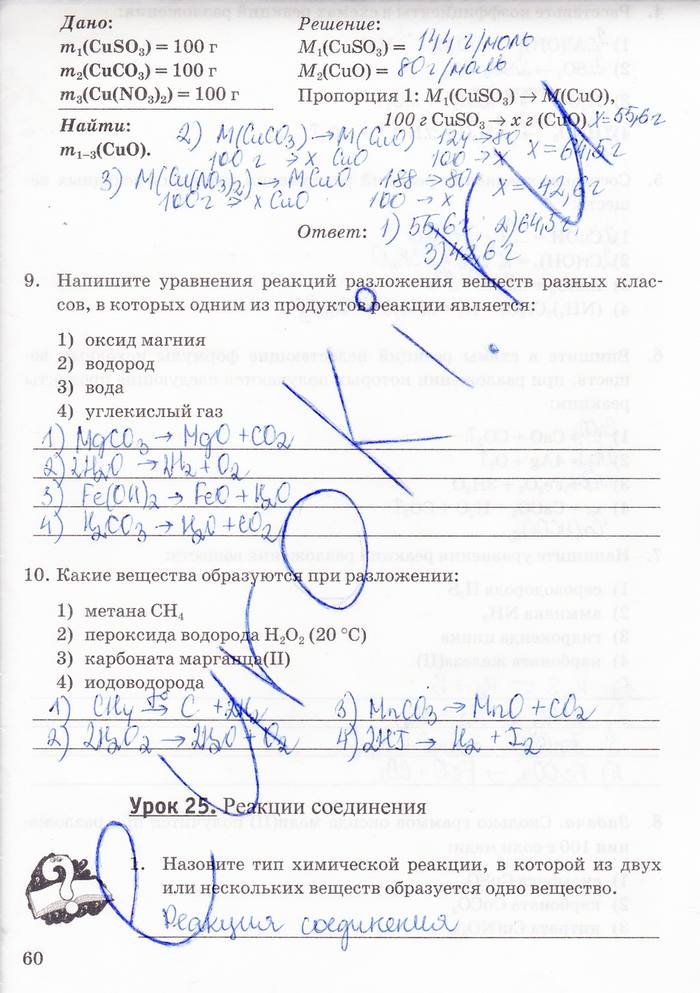 Дано:
m₁(CuSO₃) = 100 г
m₂(CuCO₃) = 100 г
m₃(Cu(NO₃)₂) = 100 г
Найти:
m₁₋₃(CuO).
Решение:
M₁(CuSO₃) = 144 г/моль
M₂(CuO) = 80 г/моль
Пропорция 1: M₁(CuSO₃) → M(CuO),
100 г CuSO₃ → x г (CuO) x=55,6г
2) M(CuCO₃)→M(CuO) 124→80
100 г → x CuO 100→x x=64,5г
3) M(Cu(NO₃)₂)→MCuO 188→80
100г→xCuO 100→x x=42,6г
Ответ: 1) 55,6г; 2)64,5г;
3)42,6г
9. Напишите уравнения реакций разложения веществ разных клас-
сов, в которых одним из продуктов реакции является:
1) оксид магния
2) водород
3) вода
4) углекислый газ
1) MgCO₃→MgO+CO₂
2) 2H₂O→2H₂+O₂
3) Fe(OH)₂→FeO+H₂O
4) H₂CO₃→H₂O+CO₂
10. Какие вещества образуются при разложении:
1) метана CH₄
2) пероксида водорода H₂O₂ (20 °C)
3) карбоната марганца(II)
4) иодоводорода
1) CH₄ → C + 2H₂ 3) MnCO₃→MnO+CO₂
2) 2H₂O₂→2H₂O+O₂ 4) 2HI→H₂+I₂
Урок 25. Реакции соединения
1. Назовите тип химической реакции, в которой из двух
или нескольких веществ образуется одно вещество.
Реакция соединения
60